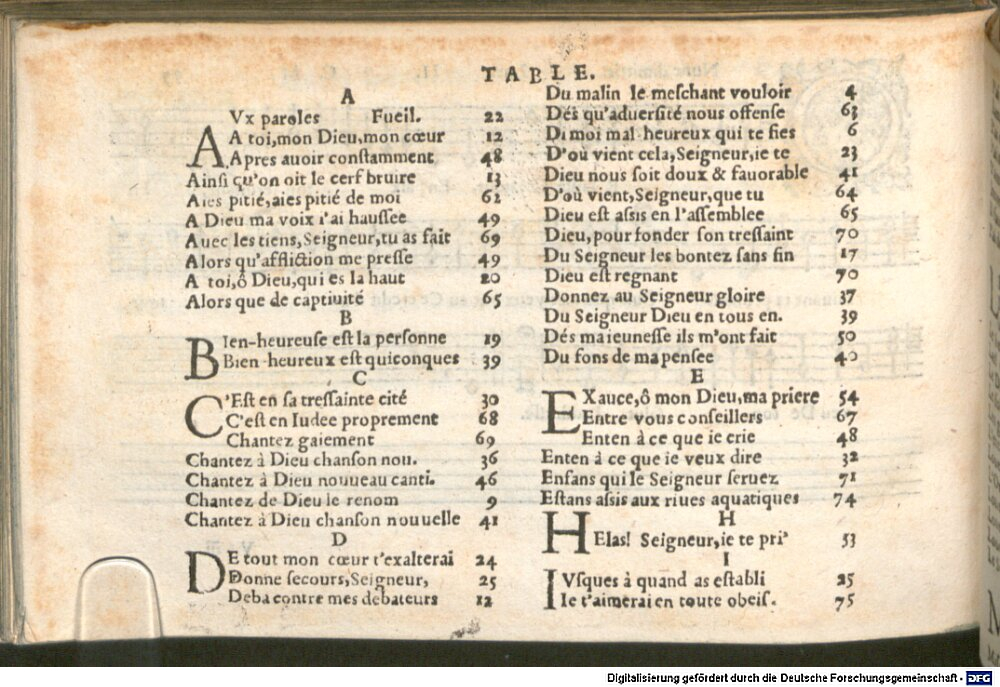 TABLE.
A
AVx paroles Fueil. 22
A toi, mon Dieu, mon cœur 12
Apres auoir conſtamment 48
Ainſi qu'on oit le cerf bruire 13
Aies pitié, aies pitié de moi 62
A Dieu ma voix i'ai hauſſee 49
Auec les tiens, Seigneur, tu as fait 69
Alors qu'affliction me preſſe 49
A toi, ô Dieu, qui es la haut 20
Alors que de captiuité 65
B
BIen-heureuſe eſt la perſonne 19
Bien-heureux eſt quiconques 39
C
C'Eſt en ſa treſſainte cité 30
C'eſt en Iudee proprement 68
Chantez gaiement 69
Chantez à Dieu chanſon nou. 36
Chantez à Dieu nouueau canti. 46
Chantez de Dieu le renom 9
Chantez à Dieu chanſon nouuelle 41
D
DE tout mon cœur t'exalterai 24
Donne ſecours, Seigneur, 25
Deba contre mes debateurs 12
Du malin le meſchant vouloir 4
Dés qu'aduerſité nous offenſe 63
Di moi mal-heureux qui te fies 6
D'où vient cela, Seigneur, ie te 23
Dieu nous ſoit doux & fauorable 41
D'où vient, Seigneur, que tu 64
Dieu eſt aſſis en l'aſſemblee 65
Dieu, pour fonder ſon treſſaint 70
Du Seigneur les bontez ſans fin 17
Dieu eſt regnant 70
Donnez au Seigneur gloire 37
Du Seigneur Dieu en tous en. 39
Dés ma ieuneſſe ils m'ont fait 50
Du fons de ma penſee 40
E
EXauce, ô mon Dieu, ma priere 54
Entre vous conſeillers 67
Enten à ce que ie crie 48
Enten à ce que ie veux dire 32
Enfans qui le Seigneur ſeruez 71
Eſtans aſſis aux riues aquatiques 74
H
HElas! Seigneur, ie te pri' 53
I
IVſques à quand as eſtabli 25
Ie t'aimerai en toute obeiſ. 75
Digitalisierung gefördert durch die Deutsche Forschungsgemeinschaft - DFG